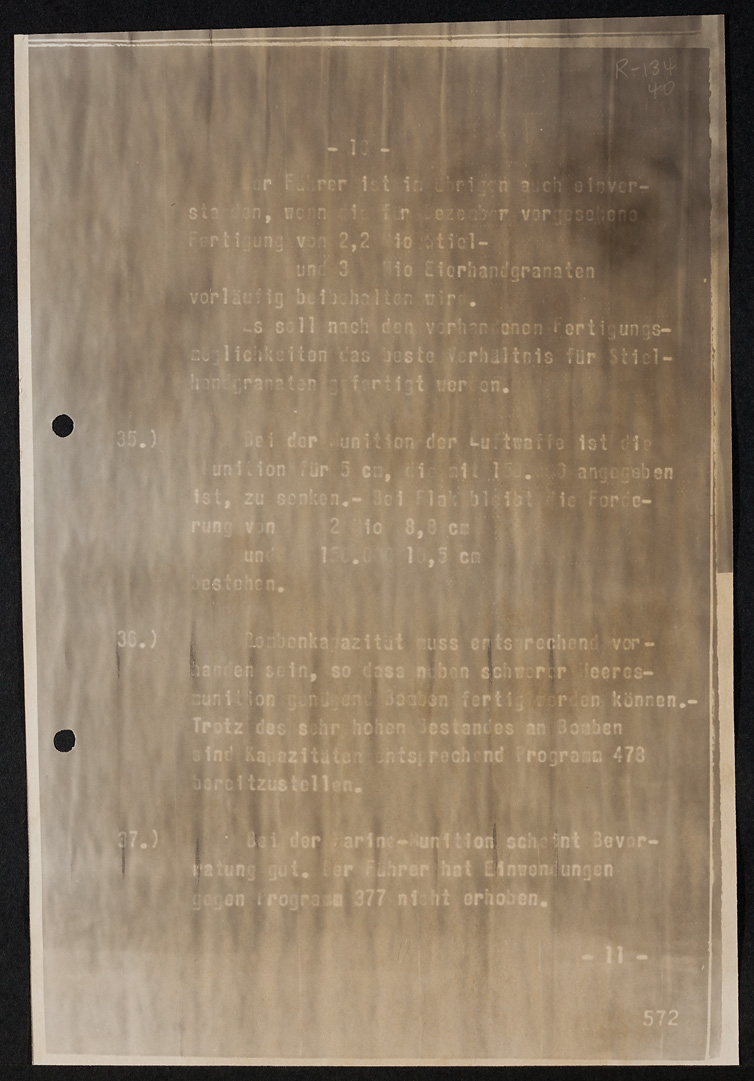 R-134
40
- 10 -
Der Führer ist im übrigen auch einver-
standen, wenn die für Dezember vorgesehene
Fertigung von 2,2 Mio Stiel-
und 3 Mio Eierhandgranaten
vorläufig beibehalten wird.
Es soll nach den vorhandenen Fertigungs-
möglichkeiten das beste Verhältnis für Stiel-
handgranaten gefertigt werden.
35.) Bei der Munition der Luftwaffe ist die
Munition für 5 cm, die mit angegeben
ist, zu senken.- Bei Flak bleibt die Forde-
rung von 2 Mio 8,8 cm
und 150.000 10,5 cm
bestehen.
36.) Bombenkapazität muss entsprechend vor-
handen sein, so dass neben schwerer Heeres-
munition genügend Bomben fertig werden können.-
Trotz des sehr hohen Bestandes an Bomben
sind Kapazitäten entsprechend Programm 478
bereitzustellen.
37.) Bei der Marine-Munition scheint Bevor-
ratung gut. Der Führer hat Einwendungen
gegen Programm 377 nicht erhoben.
- 11 -
572